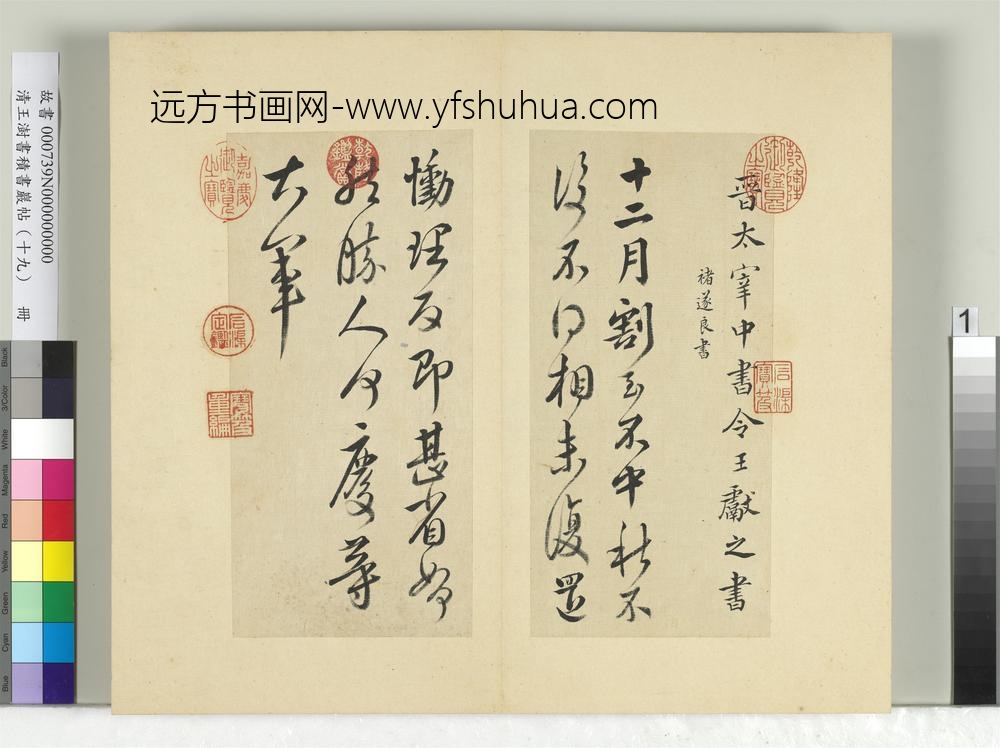 远方书画网-www.yfshuhua.com
故書 000739N000000000
清王澍書積書巖帖（十九） 冊
晉太宰中書令王獻之書
褚遂良書
十二月割至不中秋不
復不得相未復還
慟理反即甚省如
然勝人何慶等
大軍
乾隆御覽之寶
乾隆鑑賞
嘉慶御覽之寶
石渠寶笈
石渠定鑑
寶笈重編
1
Black
3/Color
White
Magenta
Red
Yellow
Green
Cyan
Blue